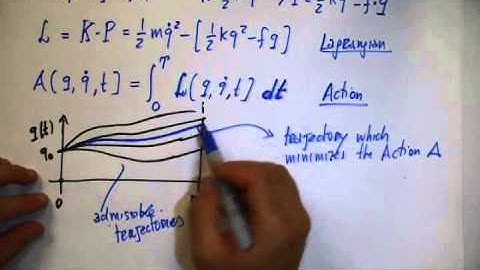 L = K - P = 1/2 m q̇² - [1/2 kq² - fq] Lagrangian
A(q, q̇, t] = ∫₀ᵀ L(q, q̇, t) dt Action
q(t)
q₀
trajectory which
minimizes the Action A
0
admissible
trajectories